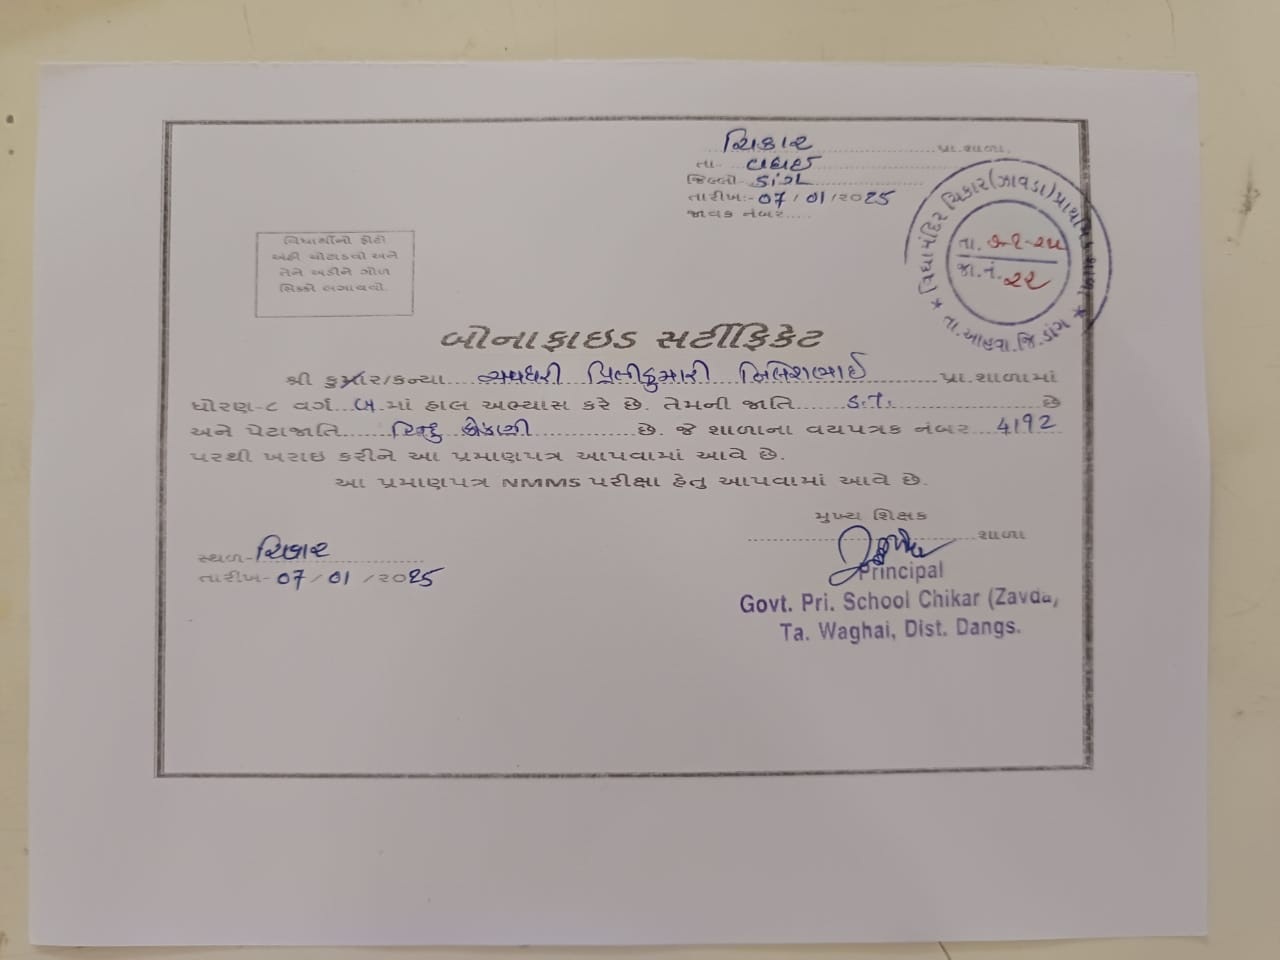 ચિકાર પ્રા.શાળા.
તા- વઘઈ
જિલ્લો- ડાંગ
તારીખ:- 07/01/2025
જાવક નંબર.....
વિદ્યામંદિર ચિકાર(ઝાવડા)પ્રાથમિક શાળા
તા. ૭-૧-૨૫
જા.નં. ૨૨
* તા.આહવા.જિ.ડાંગ *
વિદ્યાર્થીનો ફોટો
અહીં ચોટાડવો અને
તેને અડીને ગોળ
સિક્કો લગાવવો.
બોનાફાઇડ સર્ટીફિકેટ
શ્રી કુમાર/કન્યા પ્રિતીકુમારી નિલેશભાઈ પ્રા.શાળામાં
ધોરણ-૮ વર્ગ બ માં હાલ અભ્યાસ કરે છે. તેમની જાતિ S.T. છે
અને પેટાજાતિ હિન્દુ કોંકણી છે. જે શાળાના વયપત્રક નંબર 4192
પરથી ખરાઇ કરીને આ પ્રમાણપત્ર આપવામાં આવે છે.
આ પ્રમાણપત્ર NMMS પરીક્ષા હેતુ આપવામાં આવે છે.
મુખ્ય શિક્ષક
શાળા
સ્થળ- ચિકાર
તારીખ- 07/01/2025
Principal
Govt. Pri. School Chikar (Zavda,
Ta. Waghai, Dist. Dangs.